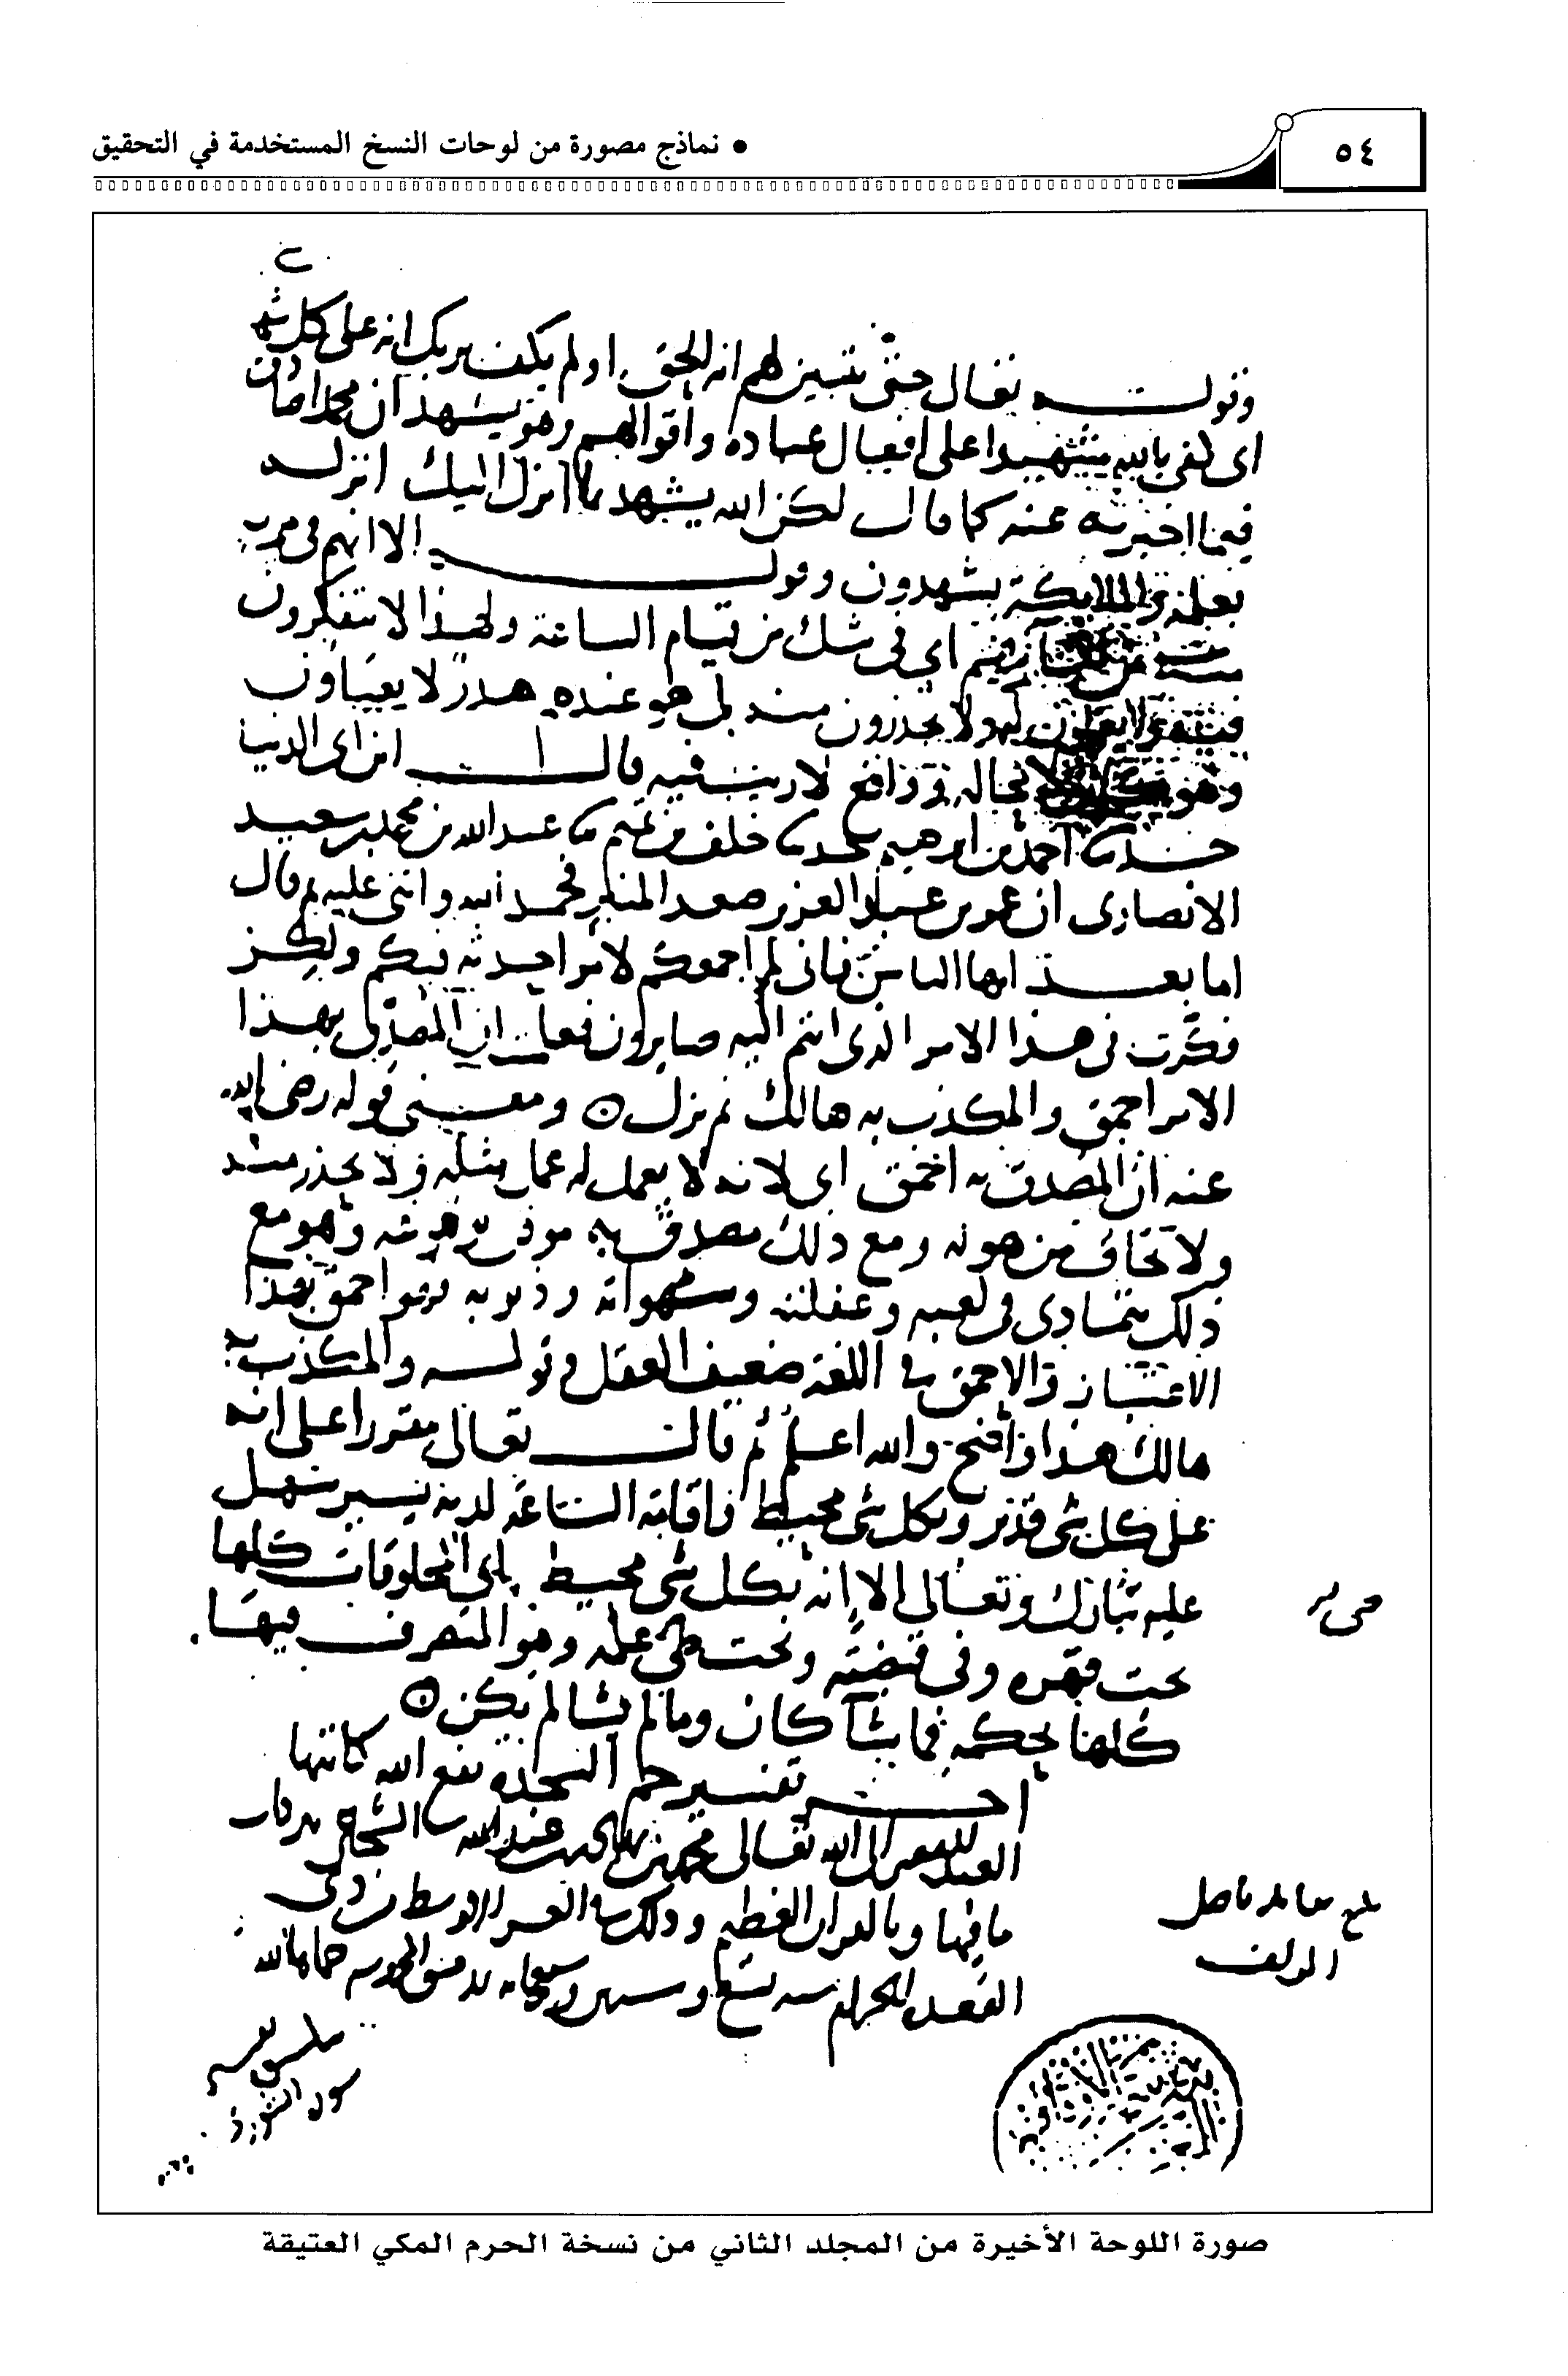 ٥٤
• نماذج مصورة من لوحات النسخ المستخدمة في التحقيق
وقولــه تعالى حتى يتبين لهم انه الحق اولم يكف بربك انه على كل شي
اى كفى بالله شهيدا على افعال عباده واقوالهم وهو يشهد ان محمدا صادق
فيما اخبر به عنه كما قال لكن الله يشهد بما انزل اليك انزله
بعلمه والملايكة يشهدون وقولــه الا انهم في مرية
من لقا ربهم اى في شك من قيام الساعة ولهذا لا يتفكرون
فيه ولا يعملون له ولا يحذرون منه بل هو عنده هدر لا يعباون
وهو لا محالة وواقع لا ريب فيه قال ابن ابى الدنيا
حدثنا احمد بن ابرهيم حدثنا خلف بن تميم ثنا عبد الله بن محمد بن سعيد
الانصارى ان عمر بن عبد العزيز صعد المنبر فحمد الله واثنى عليه ثم قال
اما بعد ايها الناس فانى لم اجمعكم لامر احدثه فيكم ولكن
فكرت في هذا الامر الذى انتم اليه صايرون فعلمت ان المصدق بهذا
الامر احمق والمكذب به هالك ثم نزل ومعنى قوله رضى الله
عنه ان المصدق به احمق اى لانه لا يعمل له عمل مثله ولا يحذر منه
ولا يخاف من هوله ومع ذلك مصدق به موقن بوقوعه وهو مع
ذلك يتمادى في لعبه وغفلته وشهواته وذنوبه فهو احمق بهذا
الاعتبار والاحمق في اللغة ضعيف العقل وقولــه والمكذب به
هالك هذا واضح والله اعلم ثم قال تعالى مقررا على انه
على كل شى قدير وبكل شى محيط واقامة الساعة لديه يسير سهل
عليه تبارك وتعالى الا انه بكل شى محيط اى المخلوقات كلها
تحت قهره وفى قبضته وتحت طى علمه وهو المتصرف فيها
كلها بحكمه فما يشا كان وما لم يشا لم يكن
اخــر تفسير حم السجدة نفع الله كاتبها
العبد الفقير الى الله تعالى
ما فيها وذلك في العشر الاوسط من ذى
القعدة الحرام سنة تسع
بلغ مقابلة باصل
المولف
صورة اللوحة الأخيرة من المجلد الثاني من نسخة الحرم المكي العتيقة